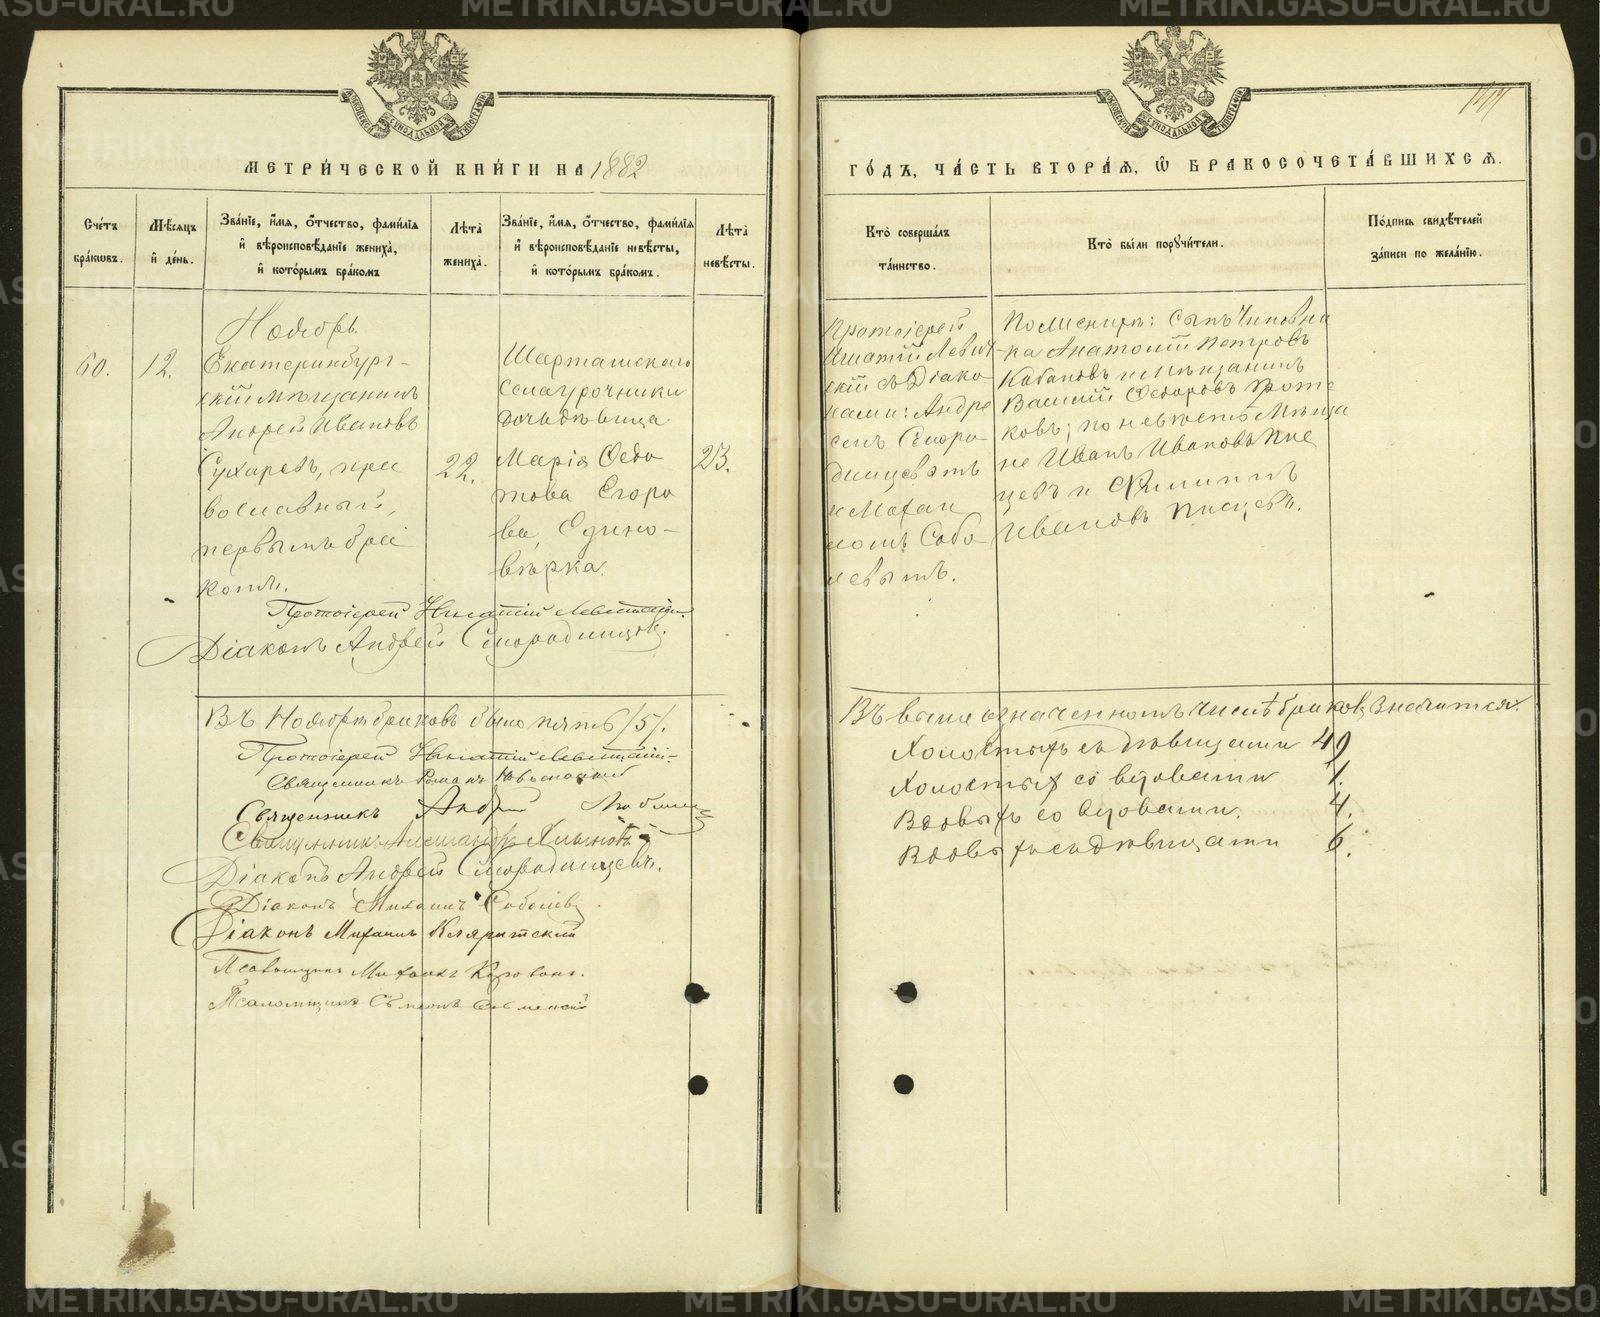 МЕТРИ́ЧЕСКОЙ КНИ́ГИ НА 1882
Сче́тъ бра́кѡвъ.
Мѣ́сяцъ и҆ де́нь.
Зва́нїе, и҆́мѧ, ѻ҆́тчество, фами́лїѧ и҆ вѣроисповѣ́данїе женихà, и҆ кото́рымъ бра́комъ
Лѣтà женихà.
Зва́нїе, и҆́мѧ, ѻ҆́тчество, фами́лїѧ и҆ вѣроисповѣ́данїе невѣ́сты, и҆ кото́рымъ бра́комъ.
Лѣтà невѣ́сты.
Ноябрь.
60.
12.
Екатеринбург-
скій мѣщанинъ
Андрей Ивановъ
Сухаревъ, пра
вославный,
первымъ бра
комъ.
22.
Шарташскаго
Села урочника
дочь дѣвица
Марія Ѳедо
това Егоро
ва, Едино-
вѣрка.
23.
Протоіерей Игнатій Левитскій.
Діаконъ Андрей Смородинцовъ.
Въ Ноябрѣ браковъ было пять /5/.
Протоіерей Игнатій Левитскій
Священникъ Романъ
Священникъ Андрей
Священникъ Александръ Хлыновъ
Діаконъ Андрей Смородинцевъ.
Діаконъ Михаилъ Соболевъ
Діаконъ Михаилъ
Псаломщикъ Михаилъ
Псаломщикъ
ГО́ДЪ, ЧА́СТЬ ВТОРА́Ѧ, Ѡ҆ БРАКОСОЧЕТА́ВШИХСѦ.
Кто̀ соверша́лъ та́инство.
Кто̀ бы́ли порꙋчи́тели.
По́дпись свидѣ́телей за́писи по жела́нїю.
Протоіерей
Игнатій Левит-
скій съ Діако
нами: Андре
емъ Сморо-
динцевымъ
и Михаи
ломъ Собо
левымъ.
По жениху: сынъ Чиновни
ка Анатолій Петровъ
Кабановъ и мѣщанинъ
Василій Ѳедоровъ
ковъ; по невѣстѣ Мѣща
не Иванъ Ивановъ Пис
цевъ и Филиппъ
Ивановъ Писцевъ.
Въ выше означенномъ числѣ браковъ значится.
Холостыхъ съ дѣвицами 49
Холостыхъ со вдовами 1.
Вдовыхъ со вдовами. 4.
Вдовыхъ съ дѣвицами 6.
METRIKI.GASO-URAL.RU